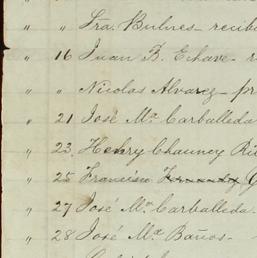 " " Fra. Bulnes - recib
" 16 Juan B. Echave - r
" " Nicolas Alvarez - pr
" 21 José Ma. Carballeda
" 23 Henry Chauncy
" 25 Francisco G
" 27 José Ma. Carballeda.
" 28 José Ma. Baños -